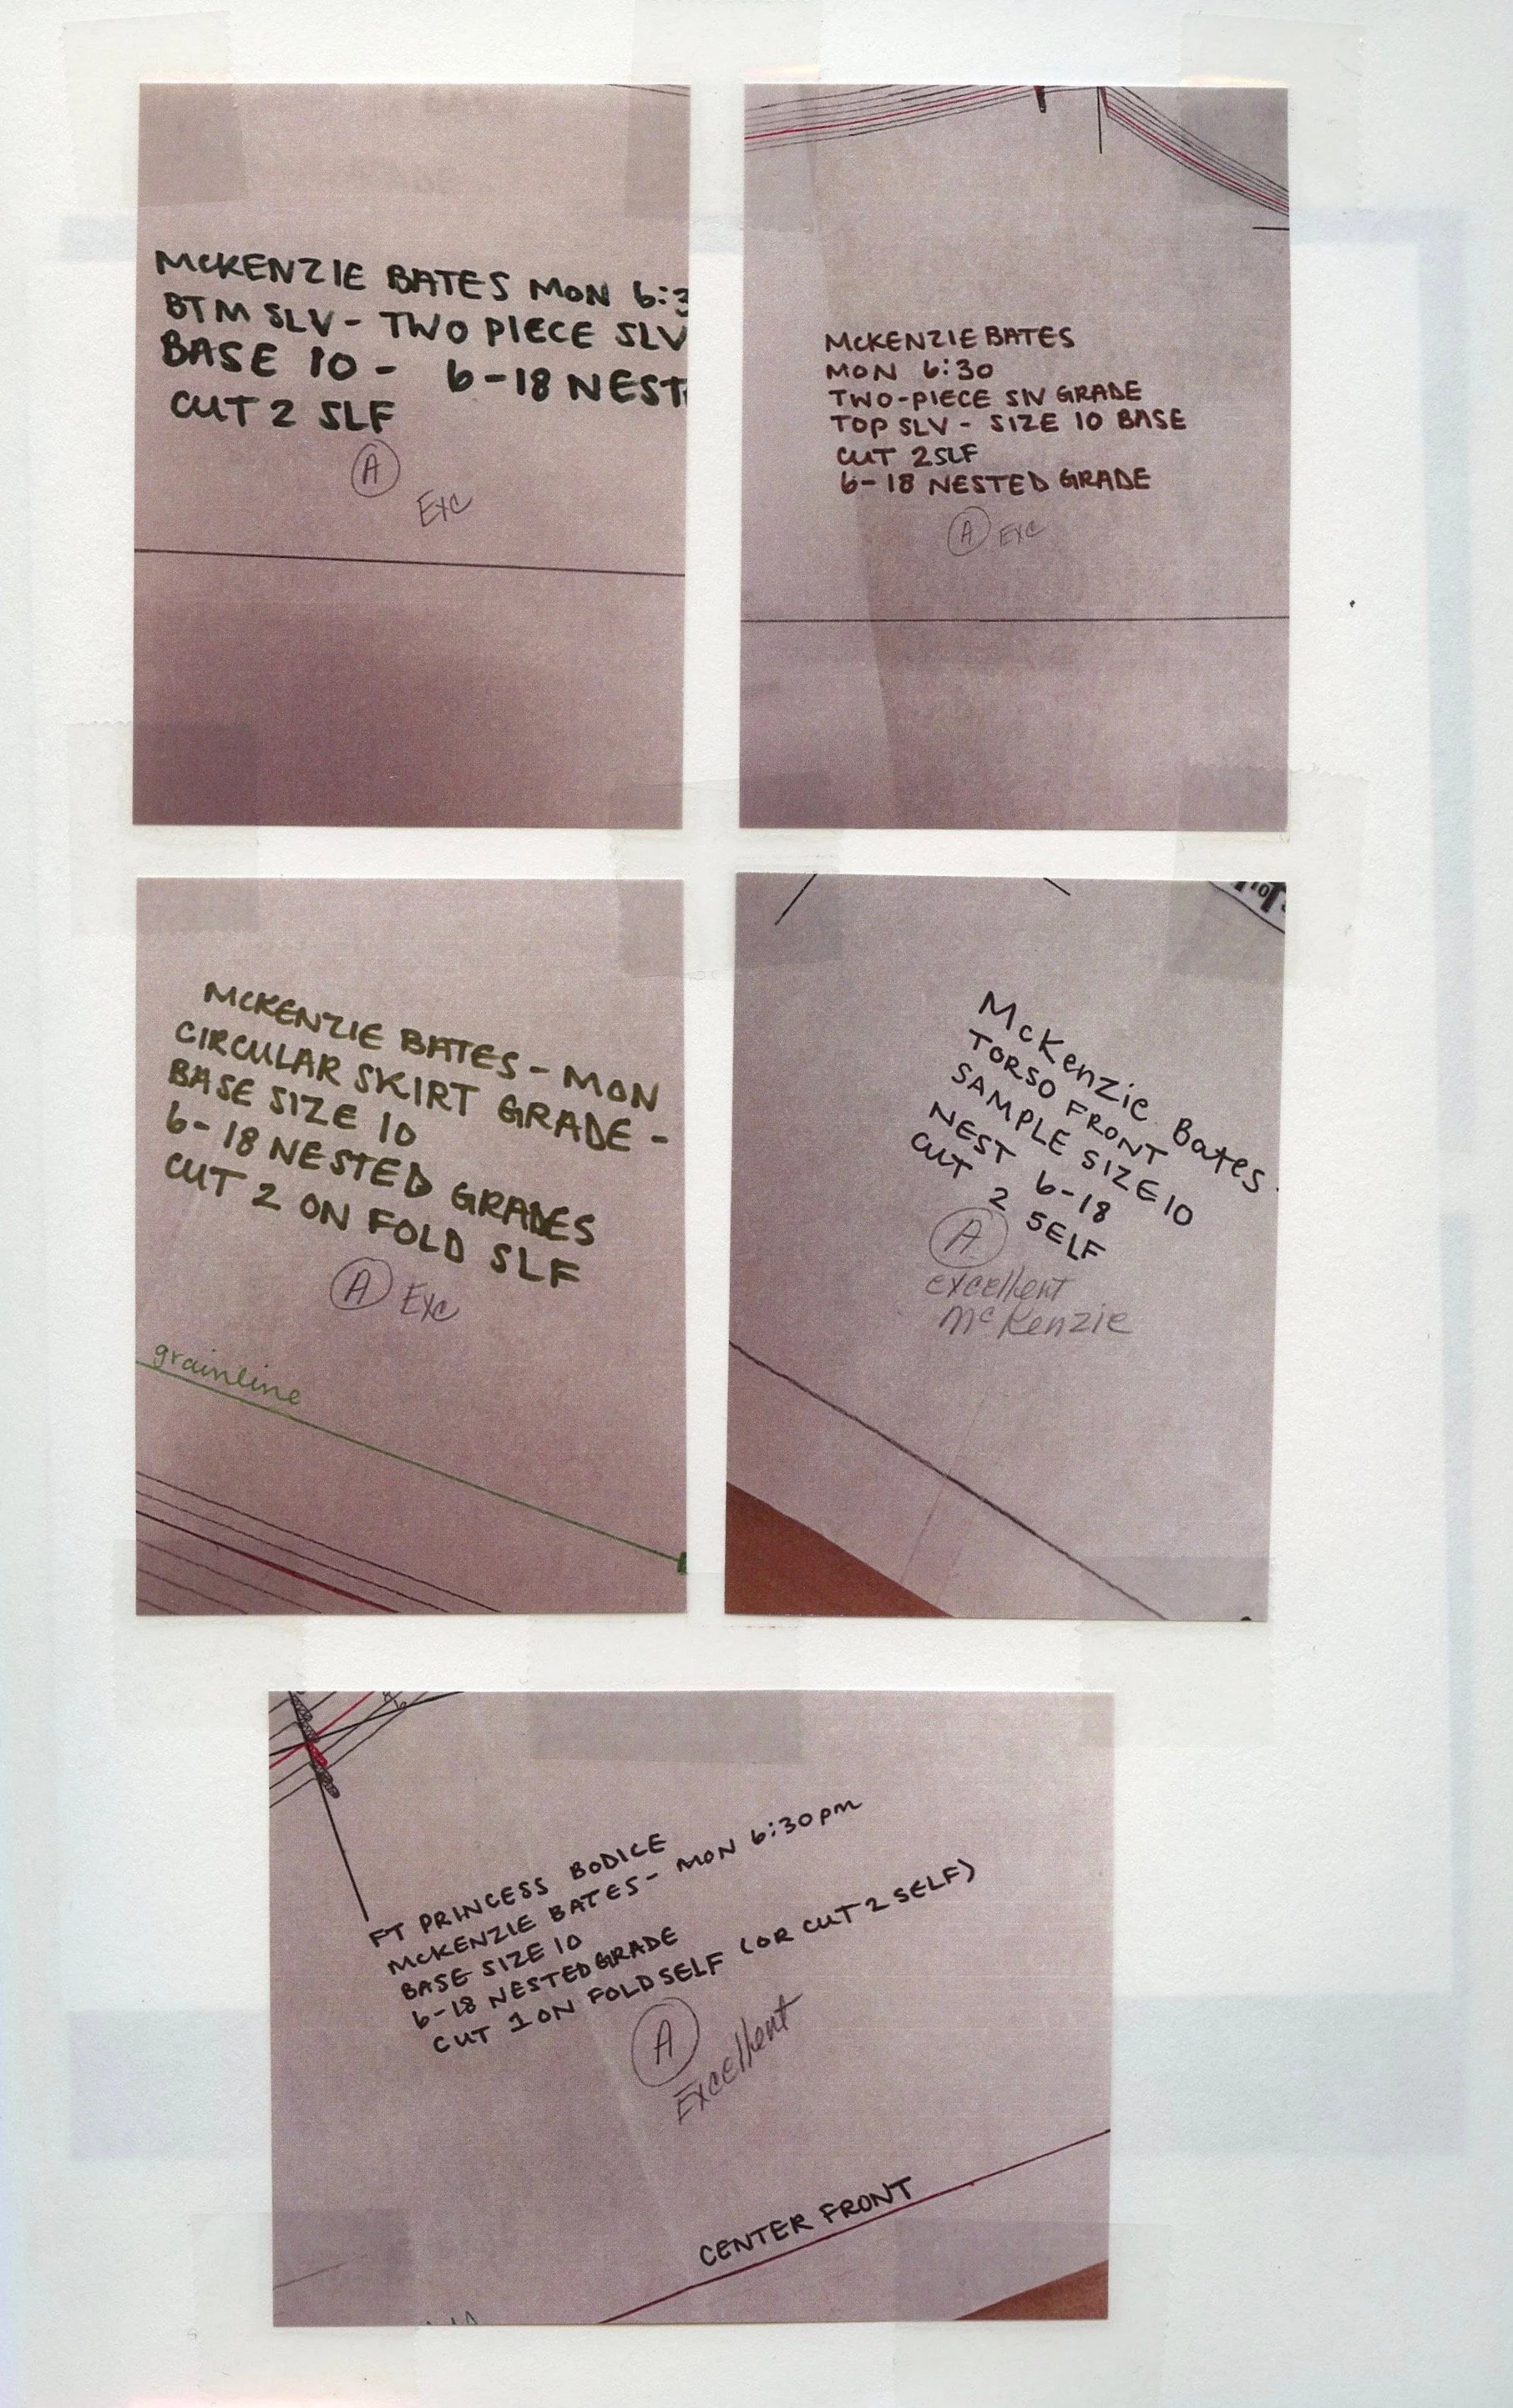 McKENZIE BATES MON 6:3
BTM SLV - TWO PIECE SLV
BASE 10 - 6-18 NEST
CUT 2 SLF
A
Exc
McKENZIE BATES
MON 6:30
TWO-PIECE SLV GRADE
TOP SLV - SIZE 10 BASE
CUT 2 SLF
6-18 NESTED GRADE
A Exc
McKENZIE BATES - MON
CIRCULAR SKIRT GRADE -
BASE SIZE 10
6-18 NESTED GRADES
CUT 2 ON FOLD SLF
A Exc
grainline
McKenzie Bates
TORSO FRONT
SAMPLE SIZE 10
NEST 6-18
CUT 2 SELF
A
excellent
McKenzie
FT PRINCESS BODICE
McKENZIE BATES - MON 6:30pm
BASE SIZE 10
6-18 NESTED GRADE
CUT 1 ON FOLD SELF (OR CUT 2 SELF)
A
Excellent
CENTER FRONT